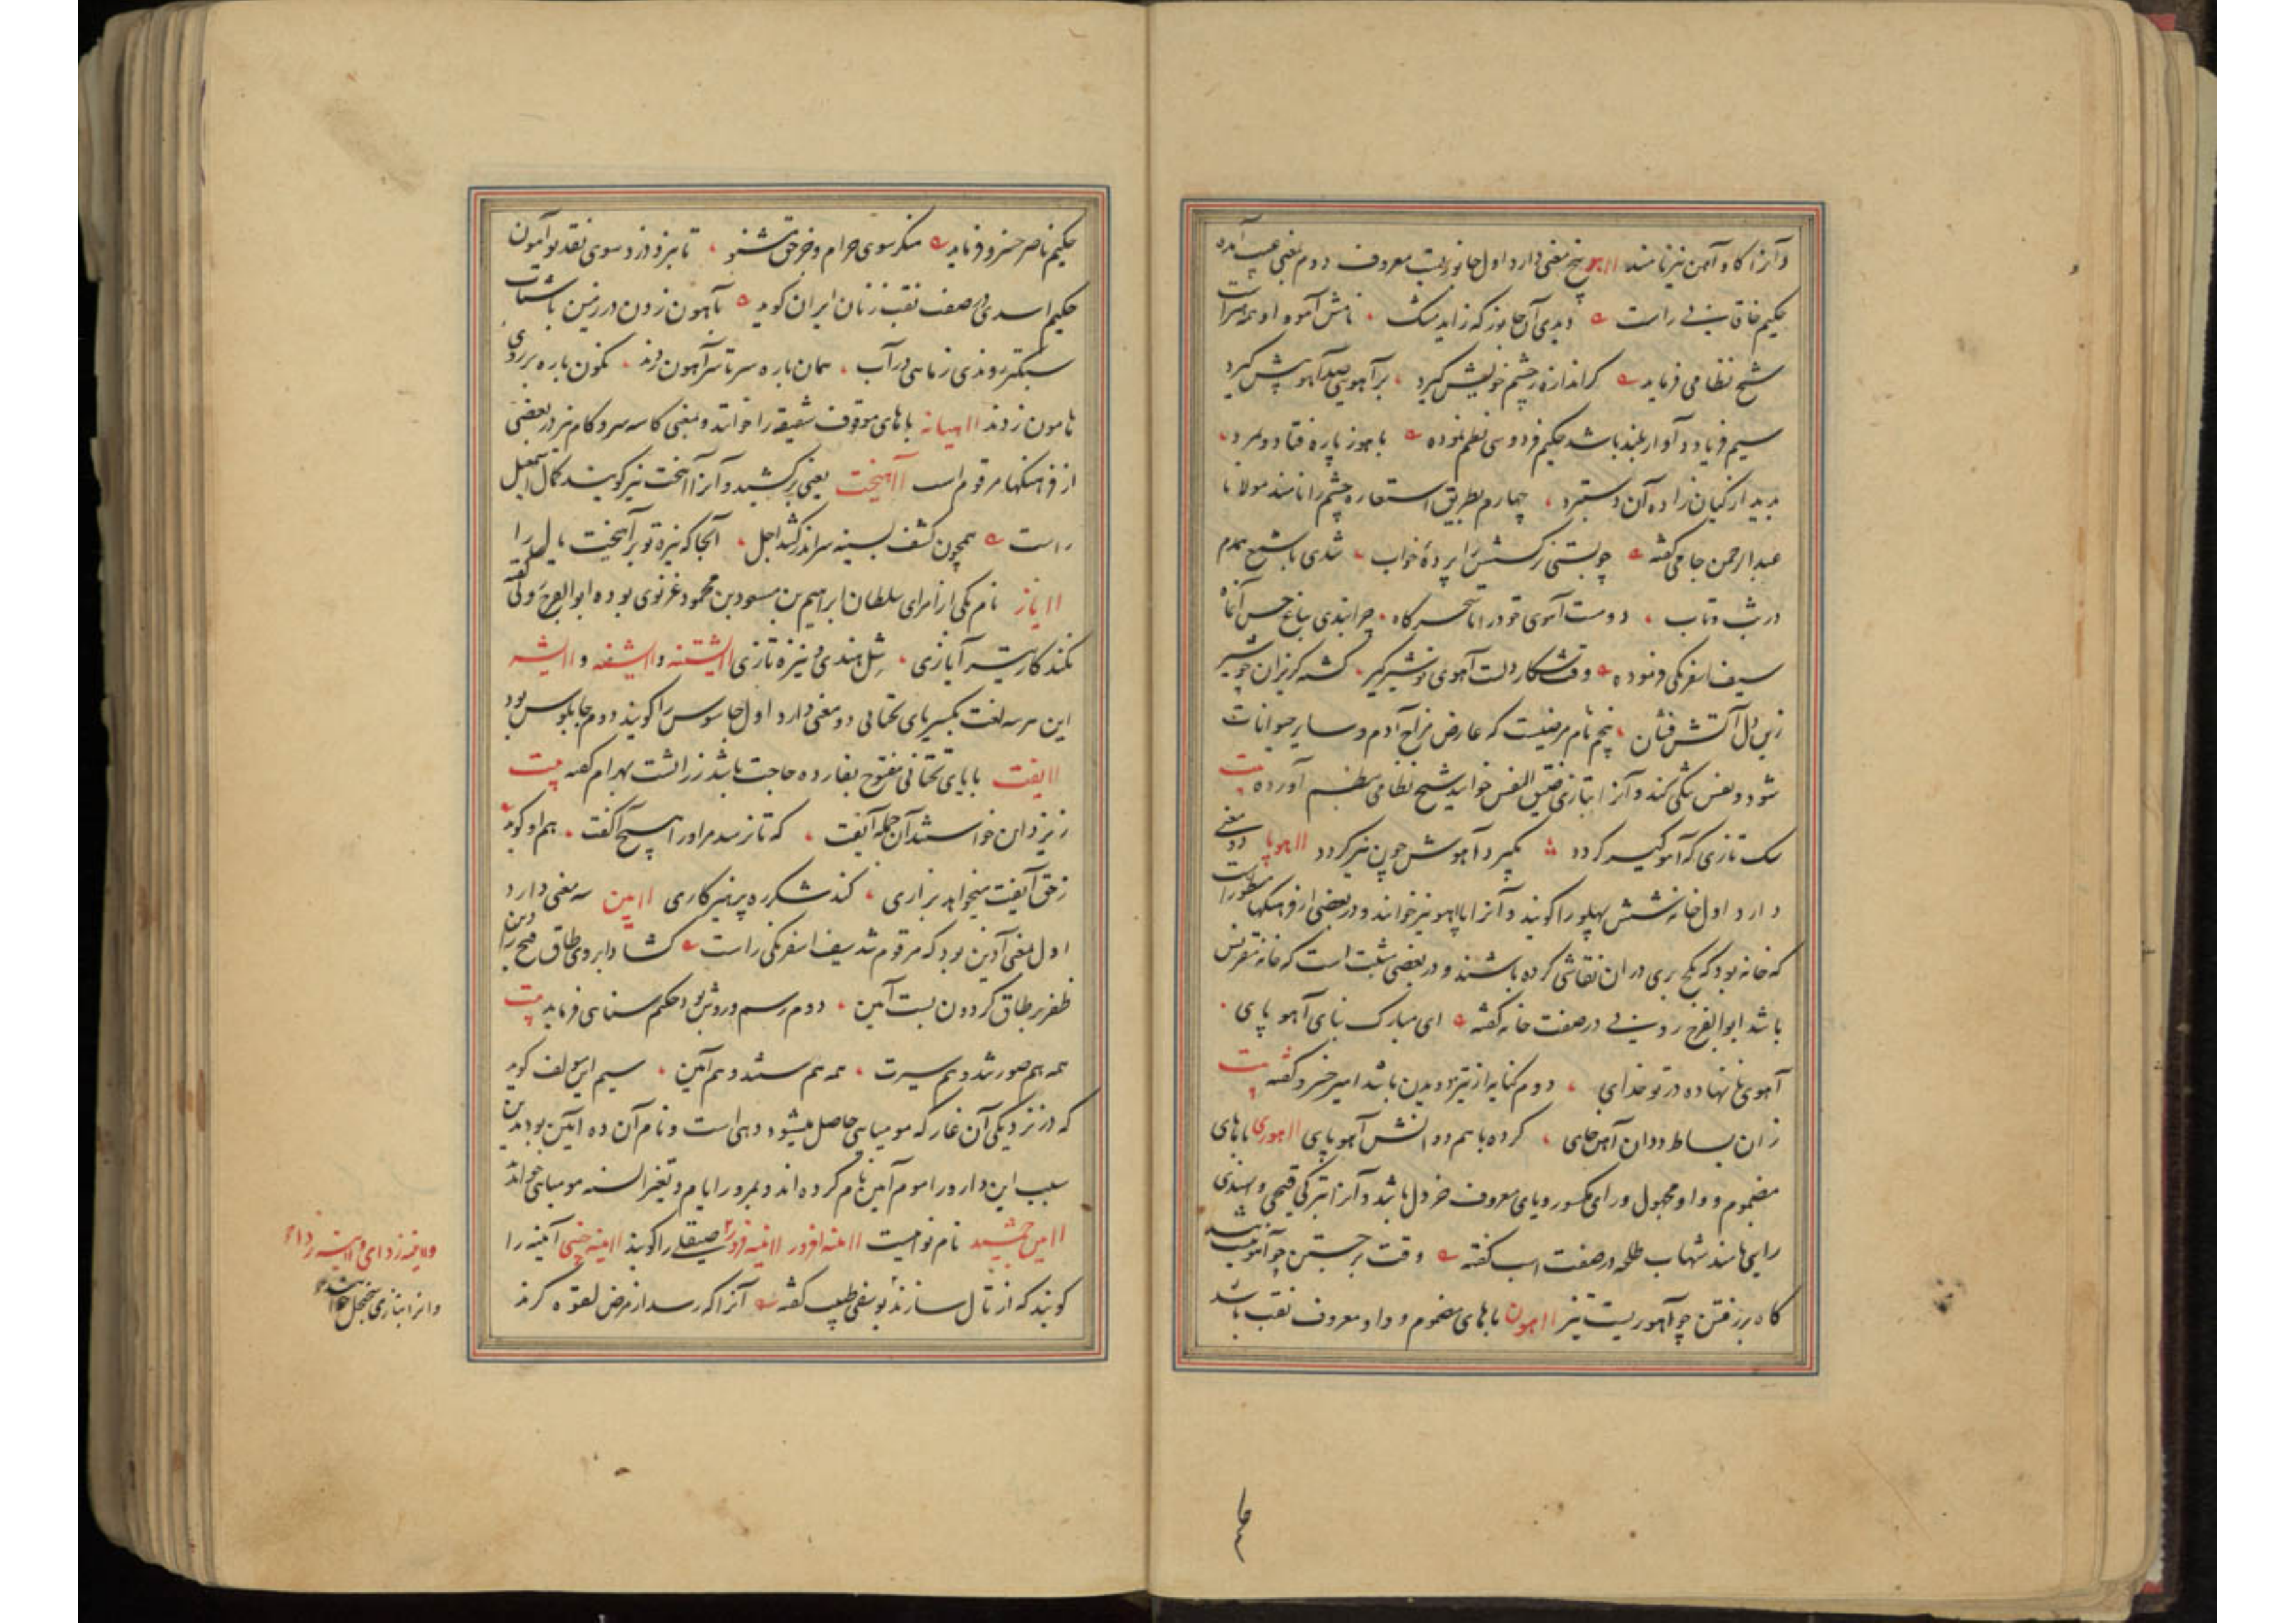 و آنرا کاو آهن نیز نامند اآهو پنج معنی دارد اول جانوریست معروف دوم بمعنی عیب آمده
حکیم خاقانی راست دیدی آن جانور که زاید مشک نامش آهو و او همه هنر است
شیخ نظامی فرماید کر اندازه ز چشم خویش گیرد بر آهویی صد آهو بیش گیرد
سیم فریاد و آواز بلند باشد حکیم فردوسی نظم نموده باهو ز باره فتاد و بمرد
بدید از کیان زاده آن دستبرد چهارم بطریق استعاره چشم را نامند مولانا
عبدالرحمن جامی گفته چو بستی نرکسش را پردهٔ خواب شدی با شمع همدم
در تب و تاب دو مست آهوی خود را تا سحرگاه چرانیدی بباغ حسن آنماه
سیف اسفرنکی فرموده وقت شکار دلت آهوی تو شیرگیر گشته گریزان چو شیر
زین دل آتش فشان پنجم نام مرضیست که عارض مزاج آدم و سایر حیوانات
شود و نفس تنگی کند و آنرا بتازی ضیق النفس خوانند شیخ نظامی بنظم آورده بیت
سک تازی که آهو گیر گردد بگیرد آهوش چون پیر گردد اآهو پا دو معنی
دارد اول خانه شش پهلو را گویند و آنرا پا آهو نیز خوانند و در بعضی از فرهنگها مسطور است
که خانه بود که بگچ بری در ان نقاشی کرده باشند و در بعضی مثبت است که خانه مقرنس
باشد ابوالفرج رونی در صفت خانه گفته ای مبارک بنای آهو پای
آهوی نا نهاده در تو خدای دوم کنایه از تیز دویدن باشد امیر خسرو گفته بیت
زان بساط دوان آهن خای کرده با هم دوانش آهو پای اآهوری باهای
مضموم و واو مجهول و رای مکسور و یای معروف خردل باشد و آنرا بترکی قیچی و بهندی
رایی نامند شهاب طلحه در صفت اسب گفته وقت برجستن چو آهوییست
گاه بررفتن چو آهوریست تیز اآهون باهای مضموم و واو معروف نقب باشد
حکیم ناصر خسرو فرماید منکر سوی حرام و جز حق مشنو تا نبرد دزد سوی نقد تو آهون
حکیم اسدی در صفت نقب زنان ایران گوید بآهون زدن در زمین باشتاب
سبکتر روندی ز ماهی در آب همان باره سر تا سر آهون زدند نگون باره بر روی
هامون زدند اآهیانه باهای موقوف شقیقه را خوانند و بمعنی کاسه سر و کام نیز در بعضی
از فرهنگها مرقوم است اآهیخت یعنی برکشید و آنرا آهنجت نیز گویند کمال اسمعیل
راست همچون کشف بسینه سر اندر کشد اجل آنجا که نیزه تو برآهیخت یال را
اآیاز نام یکی از امرای سلطان ابراهیم بن مسعود بن محمود غزنوی بوده ابوالفرج رونی گفته
نکند کار تیر آیازی شل هندی و نیزه تازی اآیشتنه و اآیشنه و اآیشه
این هر سه لغت بکسر یای تحتانی دو معنی دارد اول جاسوس را گویند دوم چابلوس بود
اآیفت بایای تحتانی مفتوح بفا زده حاجت باشد زراتشت بهرام گفته بیت
ز یزدان خواستند آن جمله آیفت که تا نرسد مر او را هیچ آکفت هم او گوید
ز حق آیفت میخواهد بزاری کند شکر ره پرهیزگاری اآیین سه معنی دارد
اول بمعنی آذین بود که مرقوم شد سیف اسفرنکی راست گشاد ابروی طاق فتح را دین
ظفر بر طاق گردون بست آیین دوم رسم و روش بود حکیم سنایی فرماید بیت
همه هم صور شد و هم سیرت همه هم سنت و هم آیین سیم ابن مولف گوید
که در نزدیکی آن غار که مومیایی حاصل میشود دهی است و نام آن ده آیین بود بدین
سبب این دارو را موم آیین نام کرده اند و بمرور ایام و تغیر السنه مومیایی خوانند
اآیین جمشید نام نواییست اآینه افروز اآینه فروز صیقلی را گویند اآینه چینی آیینه را
گویند که از تال سازند یوسفی طبیب گفته آنرا که رسد از مرض لقوه گزند
و اآینه زدای و اآیینه زدا
و انرا بتازی سجنجل خوانند